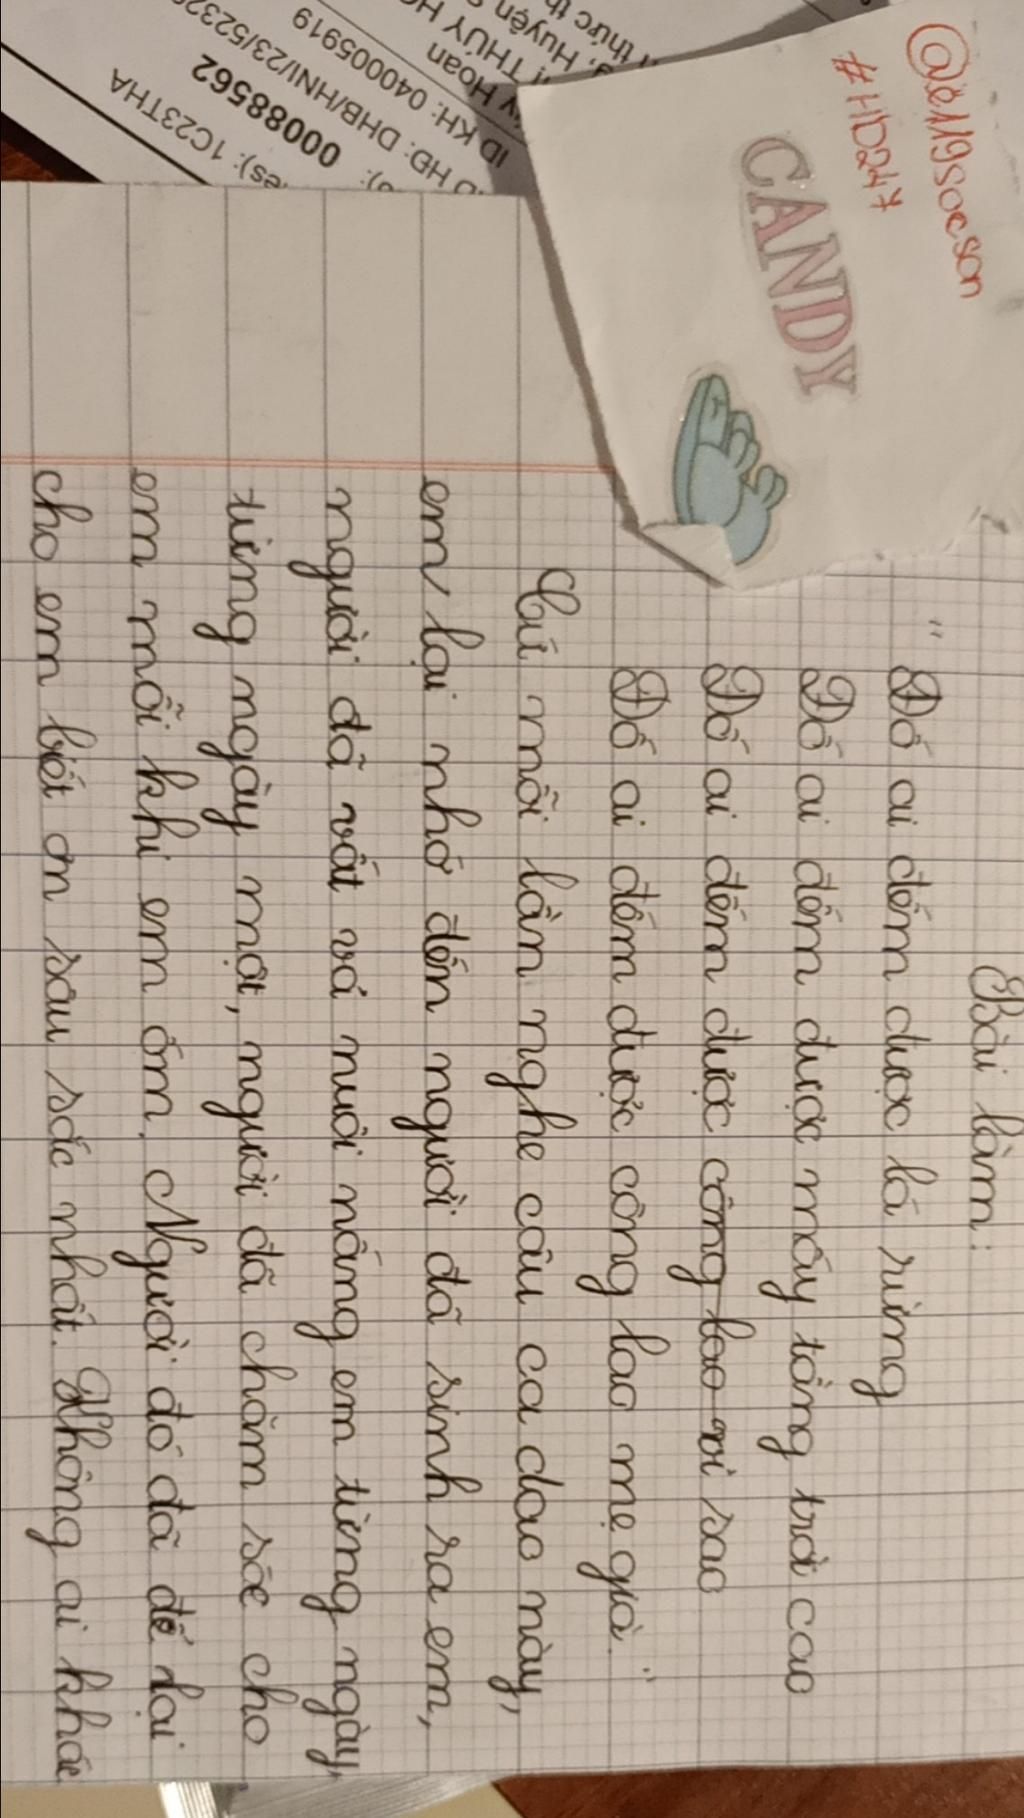 @e119socson
#HD247
CANDY
1C23THA
00088562
HĐ: DHB/HNI/23/5232
ID KH: 040005919
Hoan
THÚY
Huyện
thức
Bài làm:
"Đố ai đếm được lá rừng
Đố ai đếm được mấy tầng trời cao
Đố ai đếm được công lao vì sao
Đố ai đếm được công lao mẹ già."
Cứ mỗi lần nghe câu ca dao này,
em lại nhớ đến người đã sinh ra em,
người đã vất vả nuôi nấng em từng ngày,
từng ngày một, người đã chăm sóc cho
em mỗi khi em ốm. Người đó đã để lại
cho em biết ơn sâu sắc nhất. Không ai khác